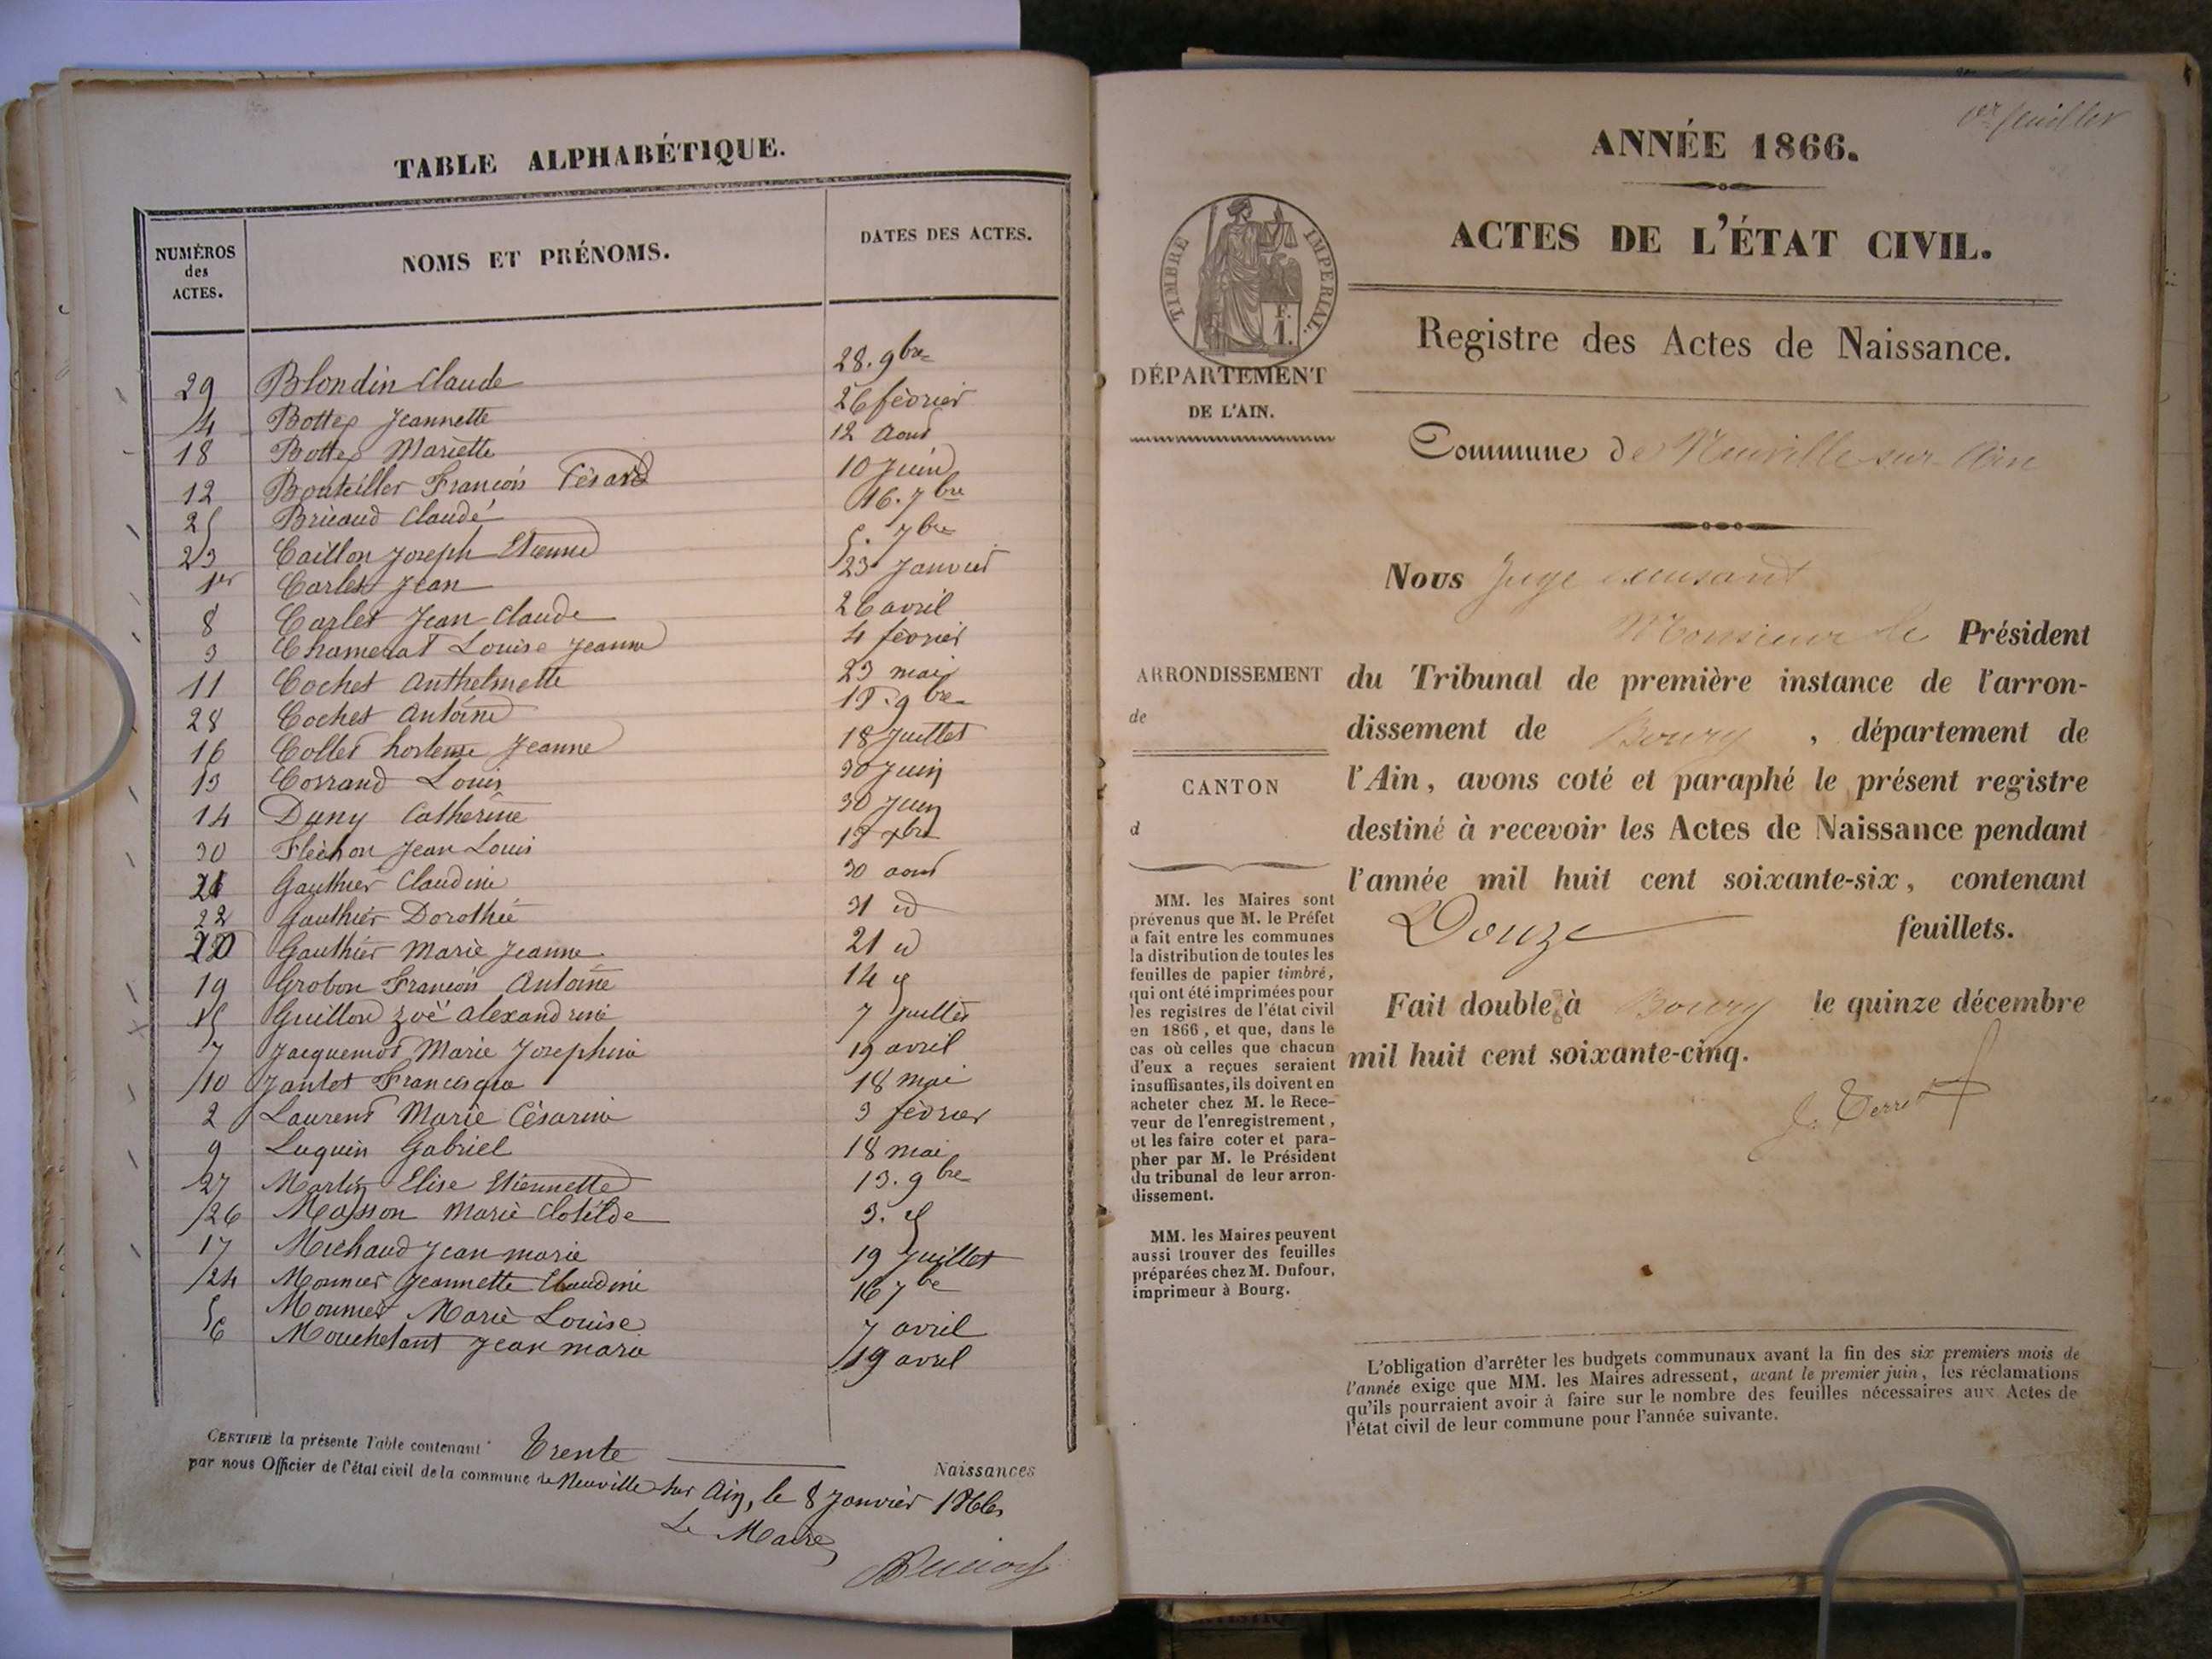 TABLE ALPHABÉTIQUE.
NUMÉROS des ACTES.
NOMS ET PRÉNOMS.
DATES DES ACTES.
29 Blondin Claude 28. 9bre
4 Bottex Jeannette 26 février
18 Bottex Mariette 12 Aout
12 Bouteiller François Césard 10 Juin
25 Bricaud Claude 16. 7bre
23 Caillon Joseph Etienne 5. 7bre
1er Carlet Jean 23 Janvier
8 Carlet Jean Claude 26 avril
3 Chamerat Louise Jeanne 4 février
11 Cochet Anthelmette 23 mai
28 Cochet Antoine 9bre
16 Collet hortense Jeanne 18 Juillet
13 Corrand Louis 30 Juin
14 Dany Catherine 30 Juin
30 Fléchon Jean Louis 18 xbre
21 Gauthier Claudine 30 aout
22 Gauthier Dorothée 31 id
20 Gauthier Marie Jeanne 21 id
19 Grobon François Antoine 14
15 Guillon Zoë alexandrine 7 Juillet
7 Jacquemot Marie Josephine 19 avril
10 Jantet Francisque 18 mai
2 Laurent Marie Césarine 3 février
9 Luquin Gabriel 18 mai
27 Martin Elise Etiennette 13. 9bre
26 Masson Marie Clotilde 3.
17 Michaud Jean marie 19 Juillet
24 Monnier Jeannette Claudine 16 7bre
5 Monnier Marie Louise 7 avril
6 Mouchetant Jean marie 19 avril
CERTIFIÉ la présente Table contenant Trente Naissances
par nous Officier de l'état civil de la commune de Neuville sur Ain, le 8 Janvier 1866
Le Maire
1er feuillet
ANNÉE 1866.
ACTES DE L'ÉTAT CIVIL.
TIMBRE IMPERIAL.
1. F.
Registre des Actes de Naissance.
DÉPARTEMENT
DE L'AIN.
Commune de Neuville sur Ain
Nous Juge
Monsieur le Président
ARRONDISSEMENT
de
CANTON
d
du Tribunal de première instance de l'arron-
dissement de Bourg, département de
l'Ain, avons coté et paraphé le présent registre
destiné à recevoir les Actes de Naissance pendant
l'année mil huit cent soixante-six, contenant
Douze feuillets.
Fait double à Bourg le quinze décembre
mil huit cent soixante-cinq.
MM. les Maires sont
prévenus que M. le Préfet
a fait entre les communes
la distribution de toutes les
feuilles de papier timbré,
qui ont été imprimées pour
les registres de l'état civil
en 1866, et que, dans le
cas où celles que chacun
d'eux a reçues seraient
insuffisantes, ils doivent en
acheter chez M. le Rece-
veur de l'enregistrement,
et les faire coter et para-
pher par M. le Président
du tribunal de leur arron-
dissement.
MM. les Maires peuvent
aussi trouver des feuilles
préparées chez M. Dufour,
imprimeur à Bourg.
L'obligation d'arrêter les budgets communaux avant la fin des six premiers mois de
l'année exige que MM. les Maires adressent, avant le premier juin, les réclamations
qu'ils pourraient avoir à faire sur le nombre des feuilles nécessaires aux Actes de
l'état civil de leur commune pour l'année suivante.